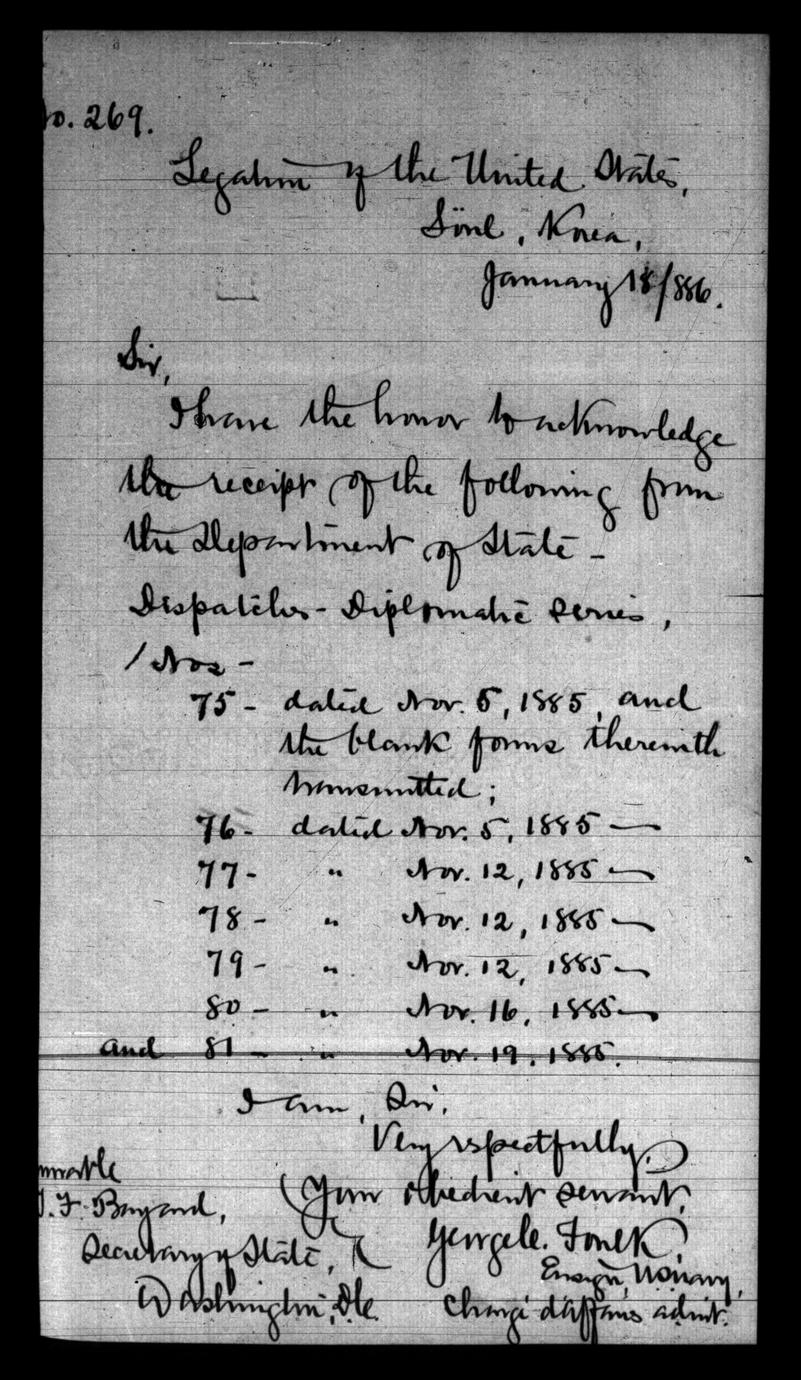 No. 269.
Legation of the United States,
Söul, Korea,
January 18/886.
Sir,
I have the honor to acknowledge
the receipt of the following from
the Department of State -
Dispatches - Diplomatic series,
/ Nos -
75 - dated Nov. 5, 1885, and
the blank forms therewith
transmitted;
76 - dated Nov. 5, 1885 —
77 - " Nov. 12, 1885 —
78 - " Nov. 12, 1885 —
79 - " Nov. 12, 1885 —
80 - " Nov. 16, 1885 —
and 81 - " Nov. 19, 1885.
I am, Sir,
Very respectfully,
Your obedient servant,
George C. Foulk,
Ensign, U.S. Navy,
Chargé d'affaires ad int.
norable
T. F. Bayard,
Secretary of State,
Washington, D.C.